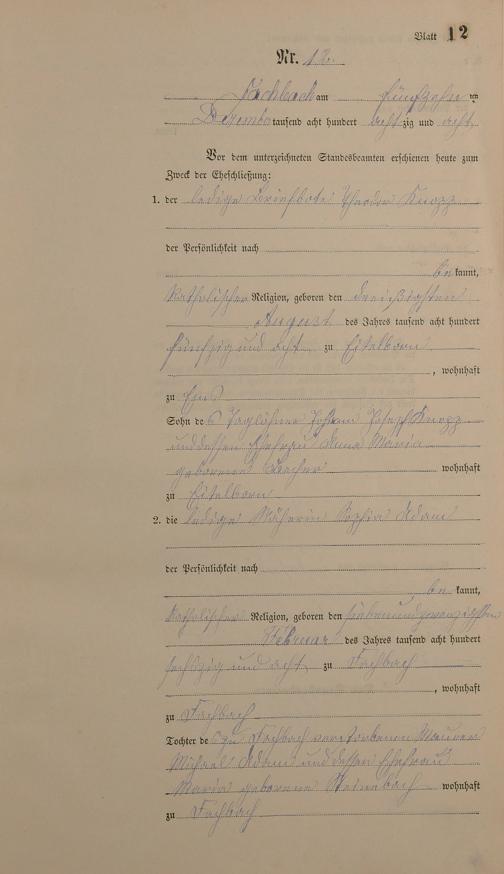 Blatt 12
Nr. 12.
Fachbach am fünfzehn ten
Dezember tausend acht hundert acht zig und acht
Vor dem unterzeichneten Standesbeamten erschienen heute zum
Zweck der Eheschließung:
1. der ledige Briefbote Theodor Knopp
der Persönlichkeit nach
be kannt,
katholischer Religion, geboren den dreißigsten
August des Jahres tausend acht hundert
fünfzig und acht zu Eitelborn
, wohnhaft
zu Ems
Sohn des Taglöhner Johann Joseph Knopp
und dessen Ehefrau Anna Maria
geborene wohnhaft
zu Eitelborn
2. die ledige Näherin Sophia Adam
der Persönlichkeit nach
be kannt,
katholischer Religion, geboren den siebenundzwanzigsten
Februar des Jahres tausend acht hundert
sechszig und acht zu Fachbach
, wohnhaft
zu Fachbach
Tochter des zu Fachbach verstorbenen Maurer
Michael Adam und dessen Ehefrau
Maria geborene Steinebach wohnhaft
zu Fachbach